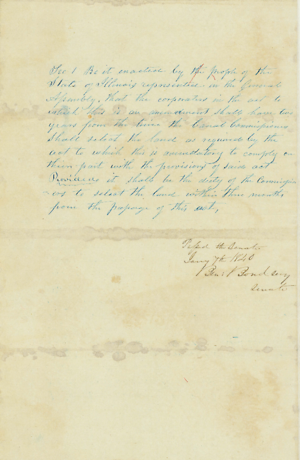 Sec 1 Be it enacted by the people of the
State of Illinois represented in the General
Assembly, that the corporators in the act to
which this is an amendment shall have two
years from the time the Canal Commissioners
shall select the land as required by the
act to which this is amendatory to comply on
their part with the provisions of said act
Provided it shall be the duty of the Commission
ers to select the land within three months
from the passage of this act,
Passed the Senate
Jany 7th 1840
Benj Bond Secy
Senate